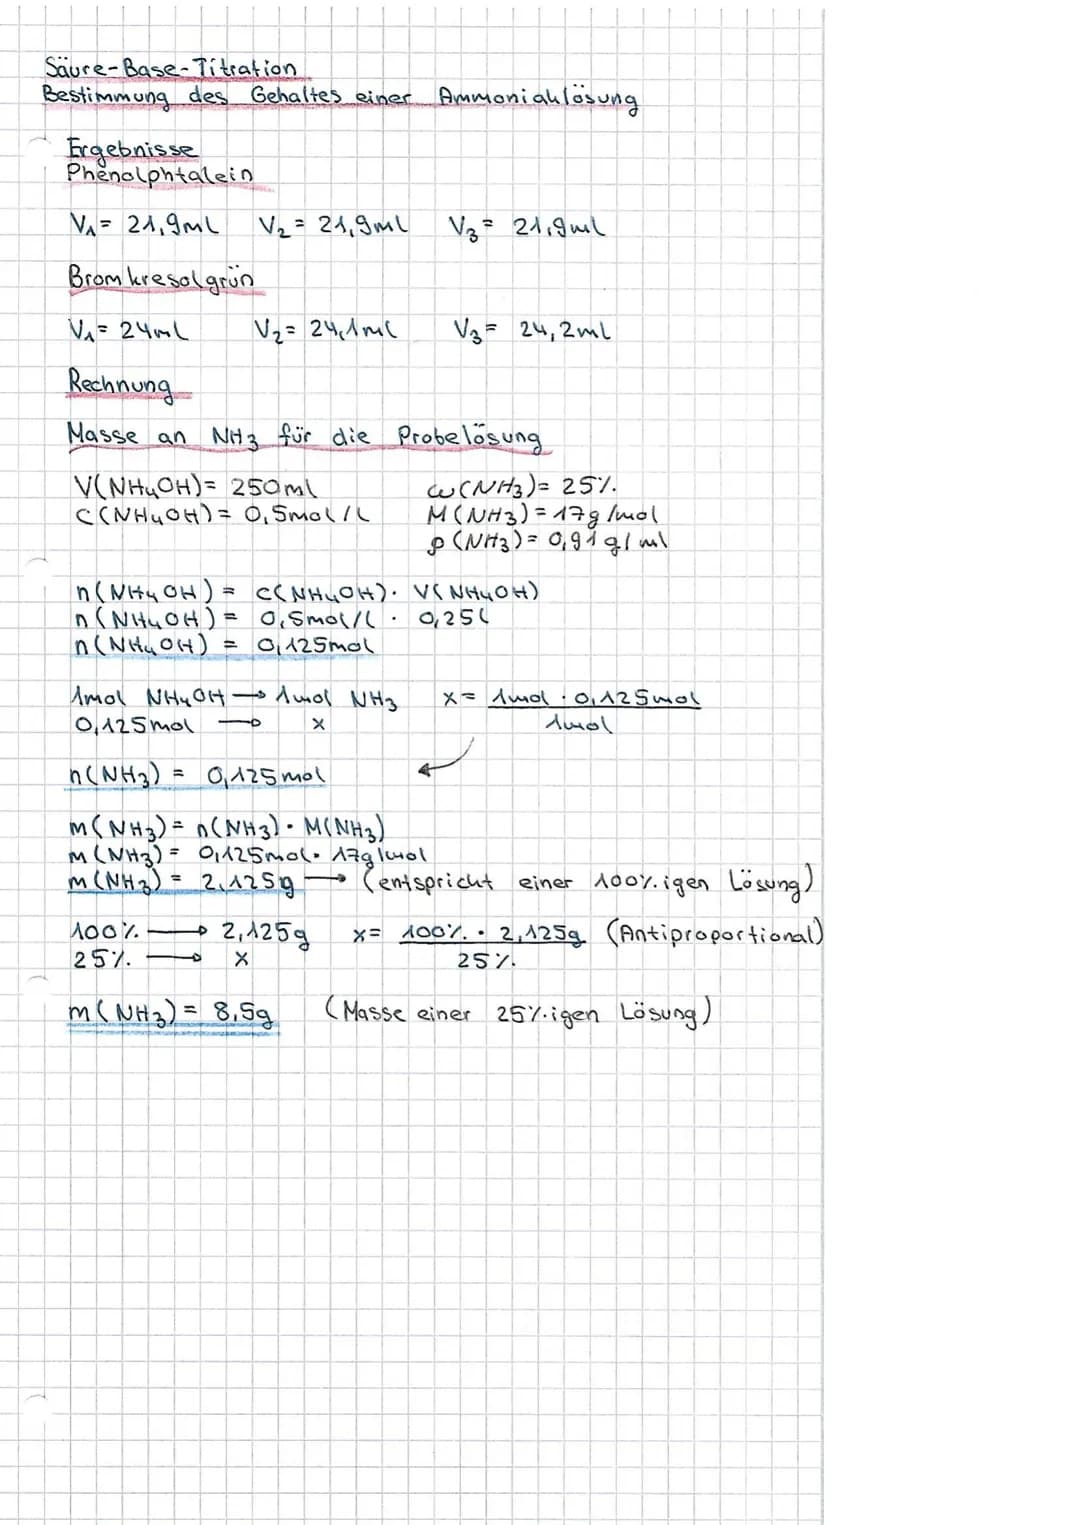 Säure-Base-Titration
Bestimmung des Gehaltes einer Ammoniaklösung
Ergebnisse
Phenolphtalein
V₁= 21,9ml V₂= 21,9ml V₃= 21,9ml
Bromkresolgrün
V₁= 24ml V₂= 24,1ml V₃= 24,2ml
Rechnung
Masse an NH3 für die Probelösung
V(NH4OH)= 250ml ω(NH3)= 25%
C(NH4OH)= 0,5mol/L M(NH3)= 17g/mol
ρ(NH3)= 0,91g/ml
n(NH4OH) = C(NH4OH) · V(NH4OH)
n(NH4OH) = 0,5mol/l · 0,25l
n(NH4OH) = 0,125mol
1mol NH4OH → 1mol NH3 x= 1mol · 0,125mol
0,125mol → x 1mol
n(NH3) = 0,125mol
m(NH3) = n(NH3) · M(NH3)
m(NH3) = 0,125mol · 17g/mol
m(NH3) = 2,125g → (entspricht einer 100%igen Lösung)
100% → 2,125g x= 100% · 2,125g (Antiproportional)
25% → x 25%
m(NH3) = 8,5g (Masse einer 25%igen Lösung)